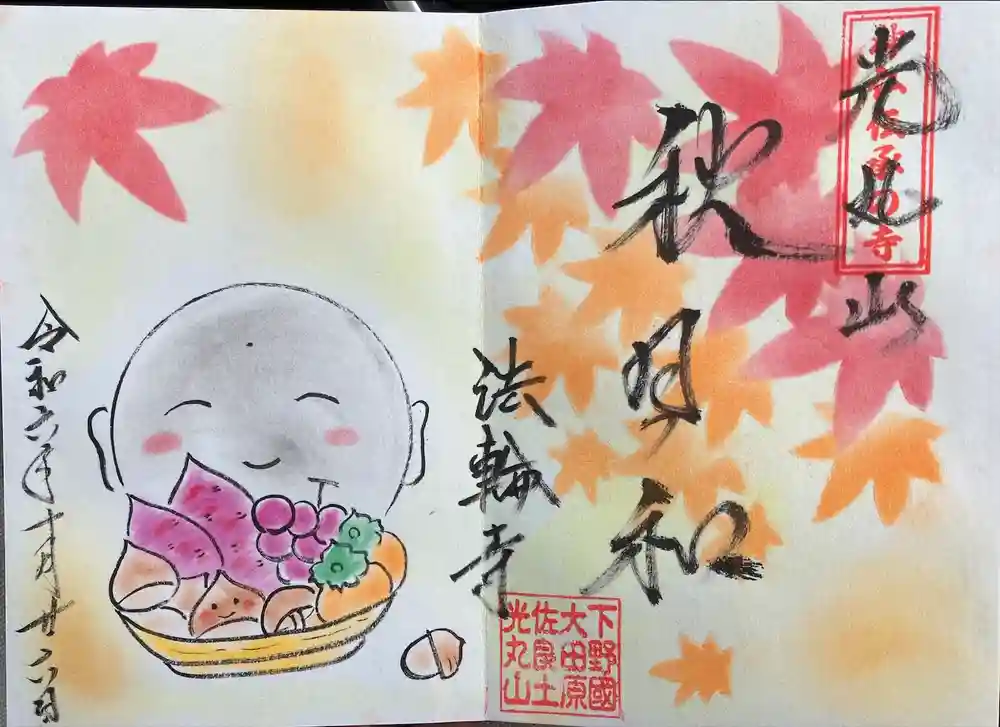 光丸山
伝承の寺
秋日和
法輪寺
下野國
大田原
佐良土
光丸山
令和六年十月廿六日